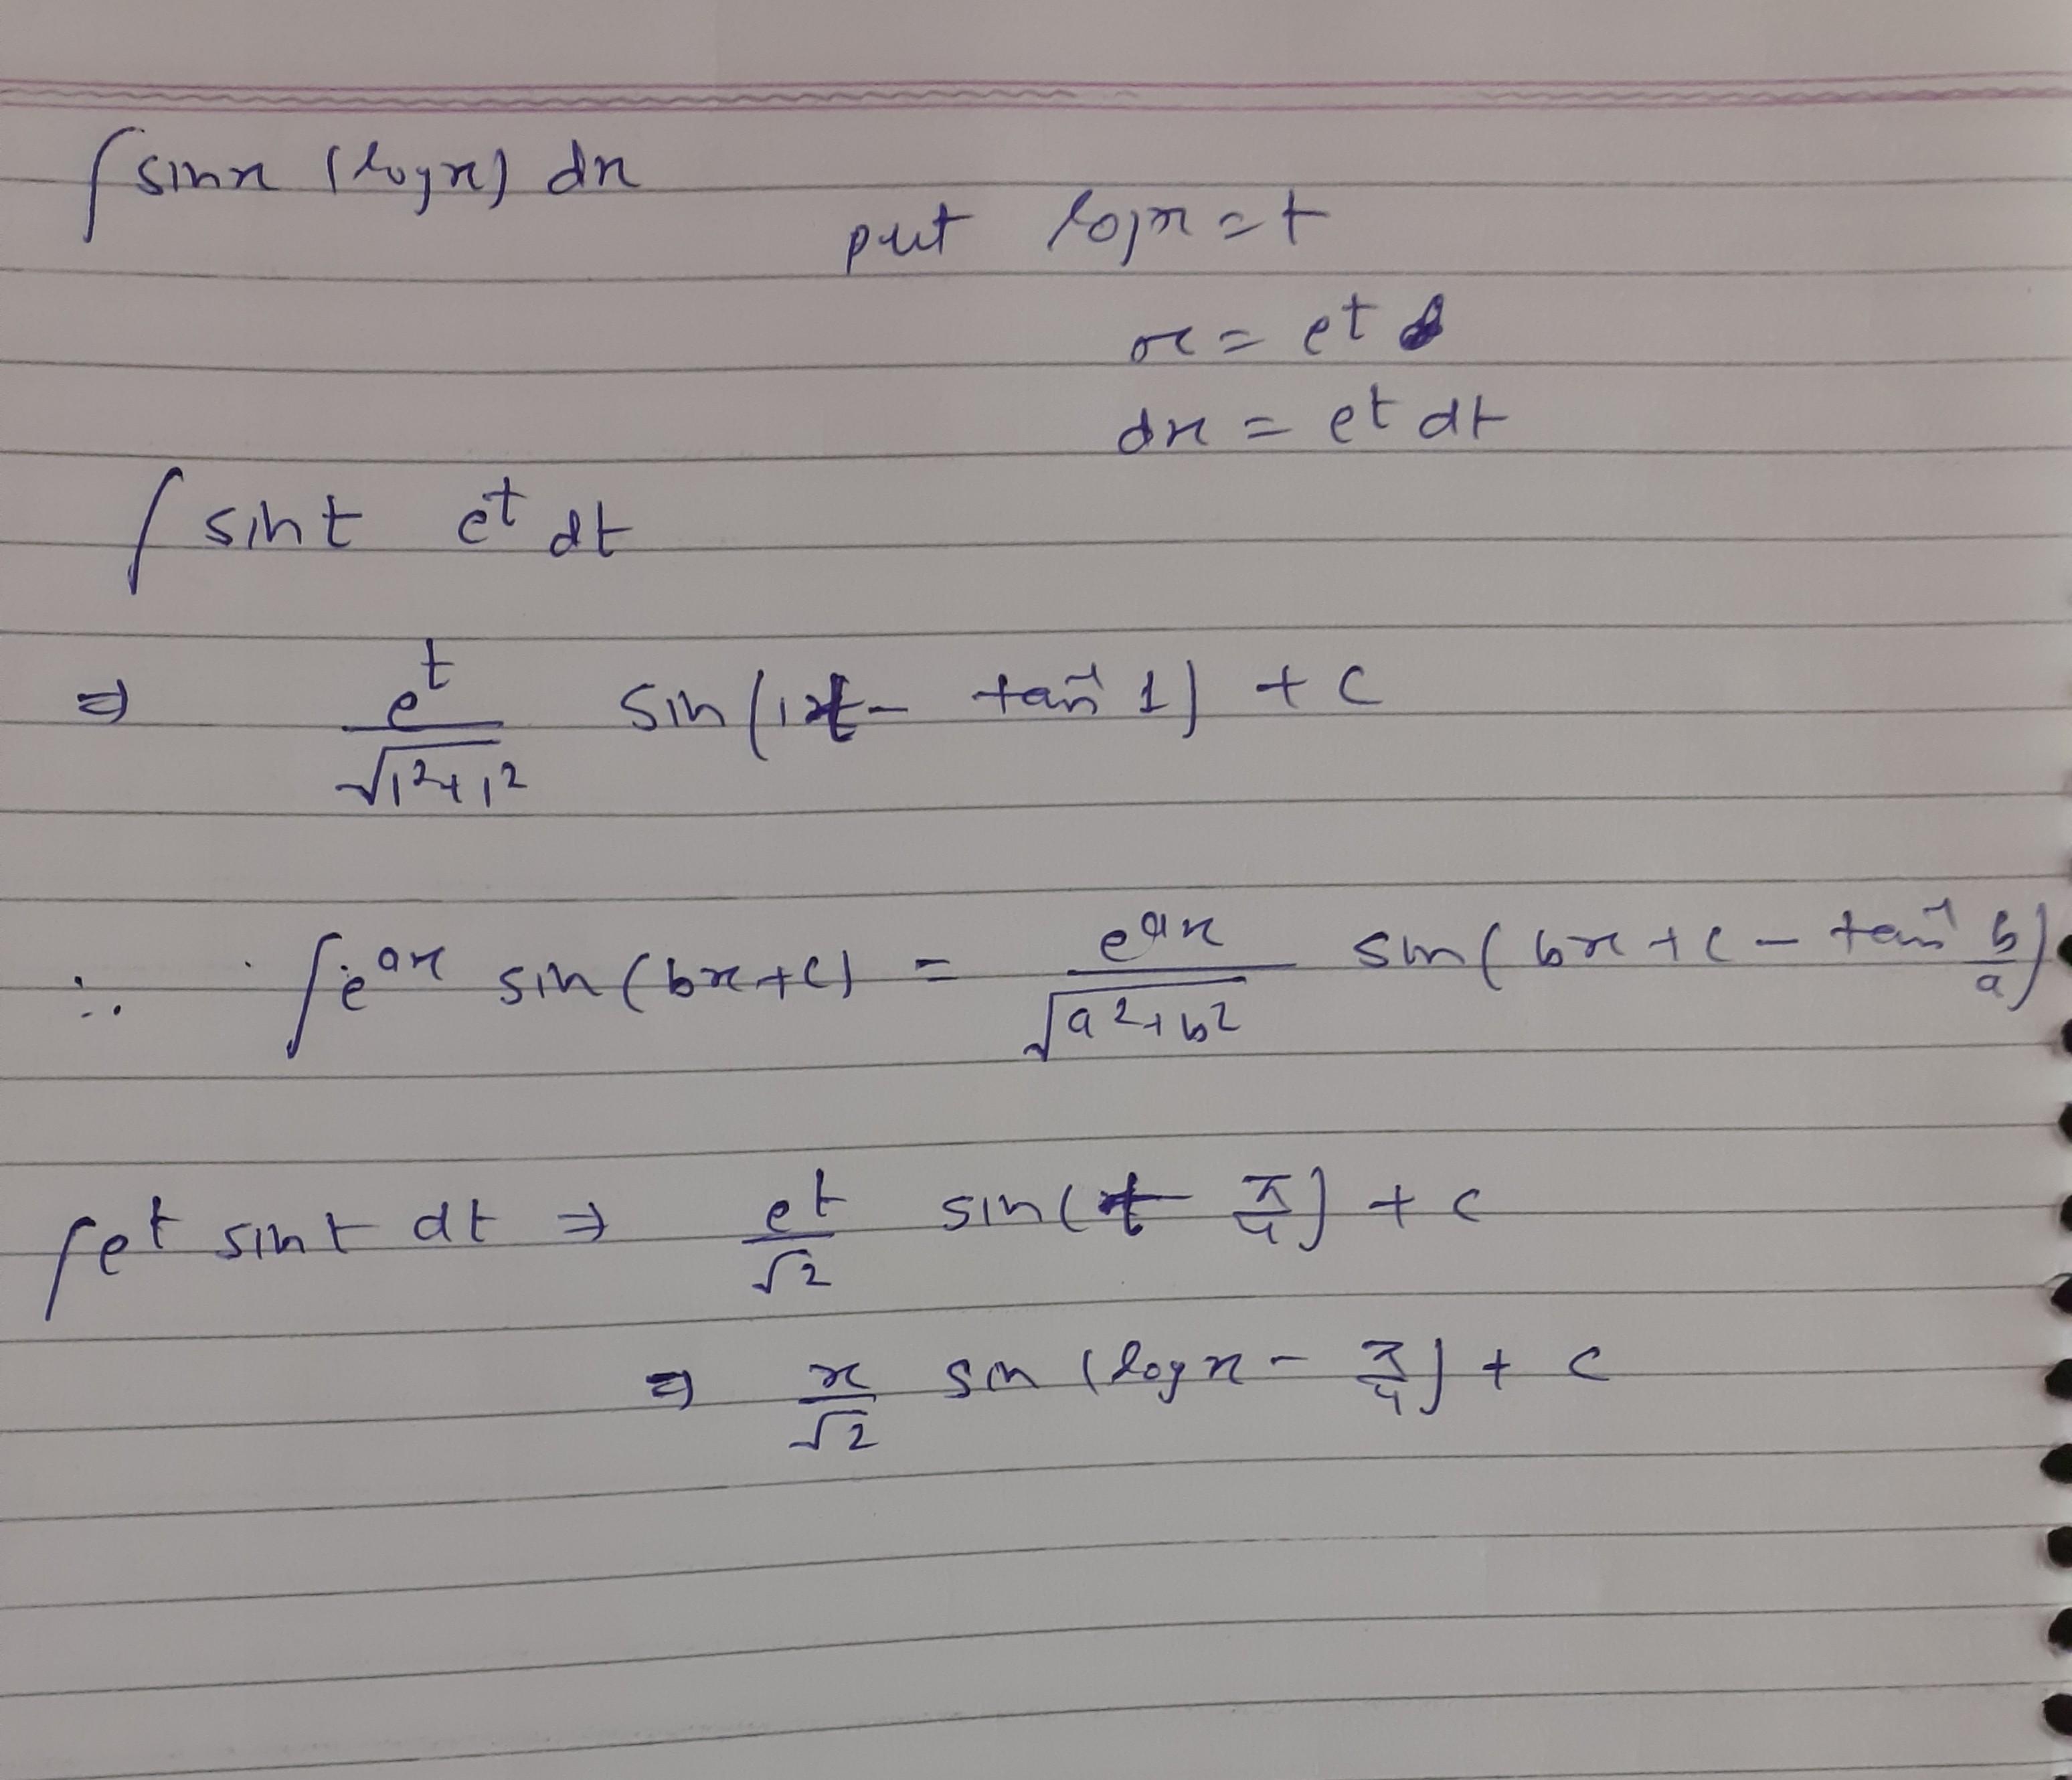 ∫ sinx (logx) dx
put logx = t
x = e^t
dx = e^t dt
∫ sint e^t dt
⇒ e^t/√(1²+1²) sin(1t - tan⁻¹ 1) + c
∴ ∫e^ax sin(bx+c) = e^ax/√(a²+b²) sin(bx+c - tan⁻¹ b/a)
∫e^t sint dt ⇒ e^t/√2 sin(t - π/4) + c
⇒ x/√2 sin (logx - π/4) + c